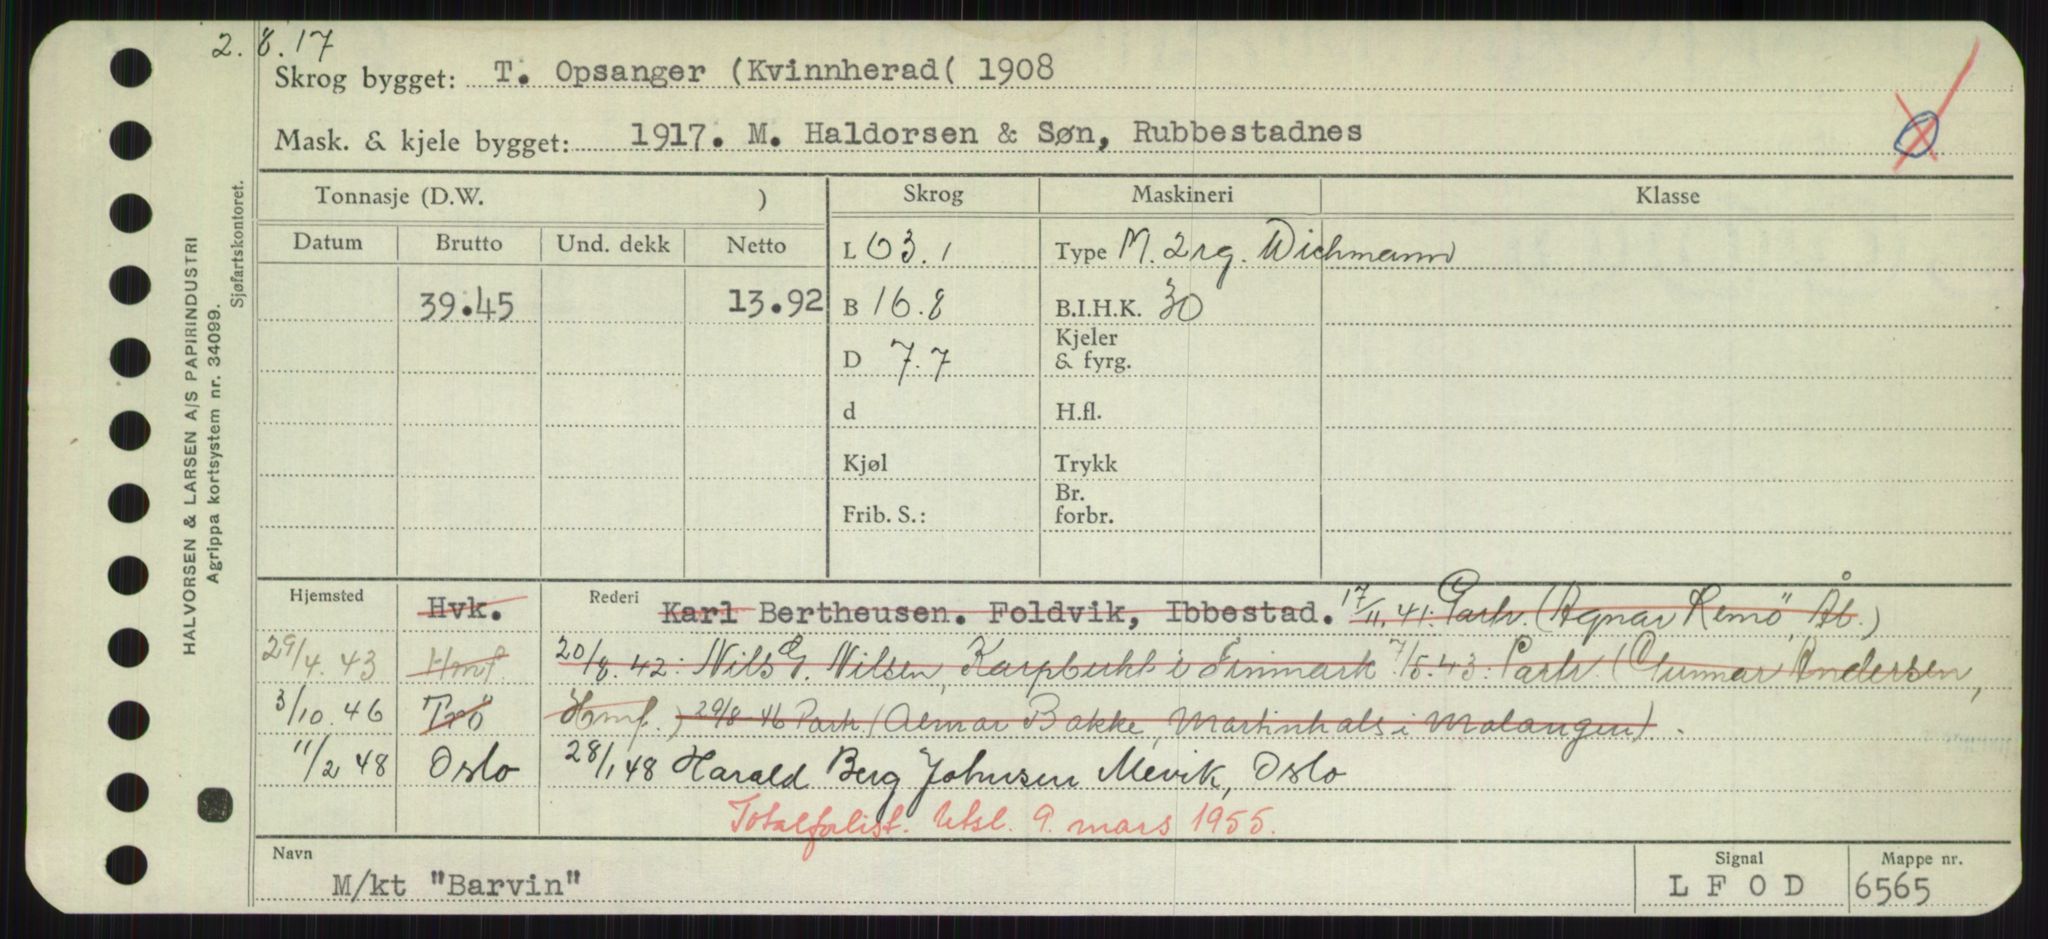 2. 8.17
Skrog bygget: T. Opsanger (Kvinnherad( 1908
Mask. & kjele bygget: 1917. M. Haldorsen & Søn, Rubbestadnes
HALVORSEN & LARSEN A/S PAPIRINDUSTRI
Agrippa kortsystem nr. 34099.
Sjøfartskontoret.
Tonnasje (D.W. ) Skrog Maskineri Klasse
Datum Brutto Und. dekk Netto L 63.1 Type M. 2 rg. Wichmann
39.45 13.92 B 16.8 B.I.H.K. 30
Kjeler
D 7.7 & fyrg.
d H.fl.
Kjøl Trykk
Br.
Frib. S.: forbr.
Hjemsted Hvk. Rederi Karl Bertheusen. Foldvik, Ibbestad. 17/11.41. Partr. (Agnar Remö, Åb.)
29/4.43 Hmf. 20/8.42: Nils G. Nilsen, Karpbukt i Finmark 7/5.43: Partr. (Gunnar Andersen,
3/10.46 Trö Hmf.) 29/8-46 Partr. (Almar Bakke, Martinhals i Malangen).
11/2 48 Oslo 28/1 48 Harald Berg Johnsen Mevik, Oslo
Totalforlist. Utsl. 9. mars 1955.
Navn Signal Mappe nr.
M/kt "Barvin" L F O D 6565